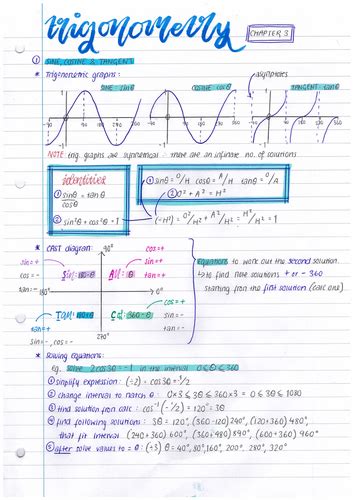 trigonometry
CHAPTER 3
① SINE, COSINE & TANGENT
* Trigonometric graphs:
asymptotes
SINE sinθ
COSINE cosθ
TANGENT tanθ
NOTE trig. graphs are symmetrical: there are an infinite no. of solutions
identities
① sinθ/cosθ = tanθ
② sin²θ + cos²θ = 1
① sinθ = O/H cosθ = A/H tanθ = O/A
② O² + A² = H²
(÷H²) = O²/H² + A²/H² = H²/H² = 1
* CAST diagram:
90°
cos=±
sin=+
sin=+
cos=-
Sin: 180-θ
All: θ
sin=+
tan=-
180°
0°
tan=+
Tan: 180+θ
Cos: 360-θ
cos=+
tan=+
sin=-
sin=-, cos=-
tan=-
270°
Equations to work out the second solution.
↳ to find more solutions + or - 360
starting from the first solution (calc one).
* Solving equations:
eg. solve 2cos3θ = -1 in the interval 0 ≤ θ ≤ 360
① simplify expression: (÷2) = cos3θ = -1/2
② change interval to match θ: 0×3 ≤ 3θ ≤ 360×3 = 0 ≤ 3θ ≤ 1080
③ find solution from calc: cos⁻¹(-1/2) = 120° = 3θ
④ find following solutions: 3θ = 120°, (360-120) 240°, (120+360) 480°,
that fit interval. (240+360) 600°, (360+480) 840°, (600+360) 960°
⑤ after solve values to = θ: (÷3) θ = 40°, 80°, 160°, 200°, 280°, 320°